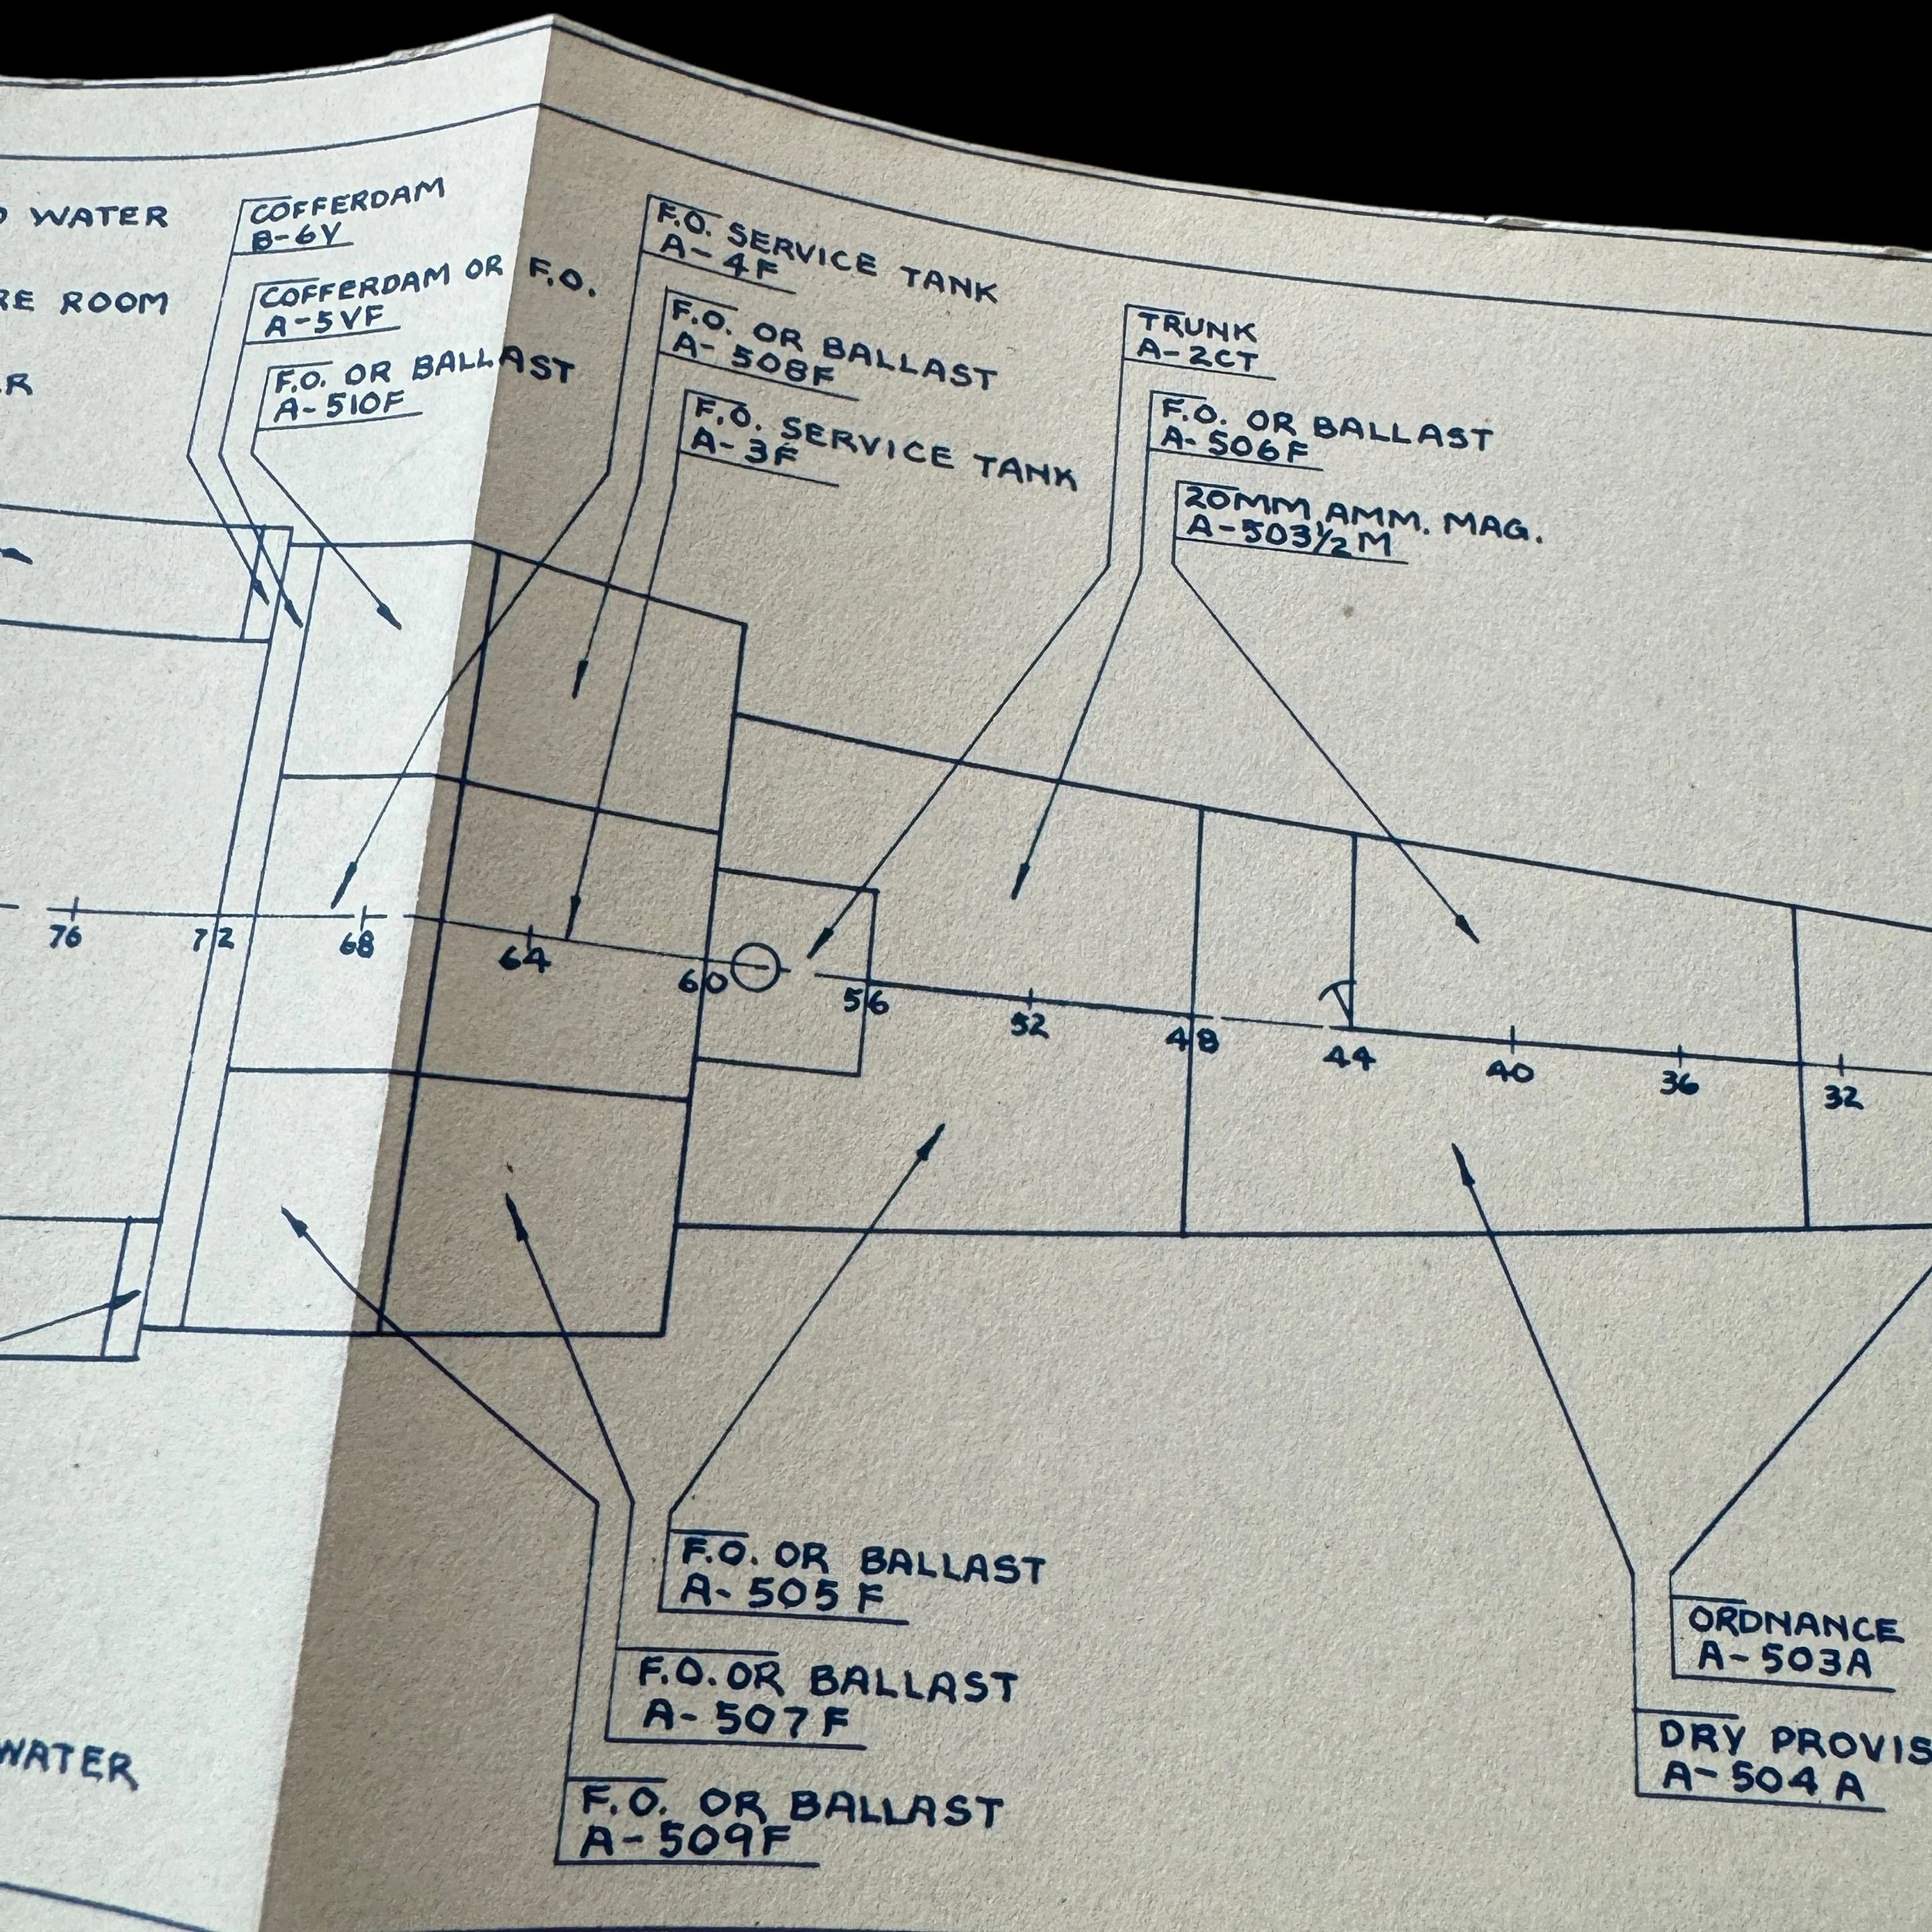 WATER
ROOM
COFFERDAM
B-6V
COFFERDAM OR F.O.
A-5VF
F.O. OR BALLAST
A-510F
F.O. SERVICE TANK
A-4F
F.O. OR BALLAST
A-508F
F.O. SERVICE TANK
A-3F
TRUNK
A-2CT
F.O. OR BALLAST
A-506F
20MM AMM. MAG.
A-503½M
76 72 68 64 60 56 52 48 44 40 36 32
F.O. OR BALLAST
A-505F
F.O. OR BALLAST
A-507F
F.O. OR BALLAST
A-509F
ORDNANCE
A-503A
DRY PROVIS
A-504A
WATER